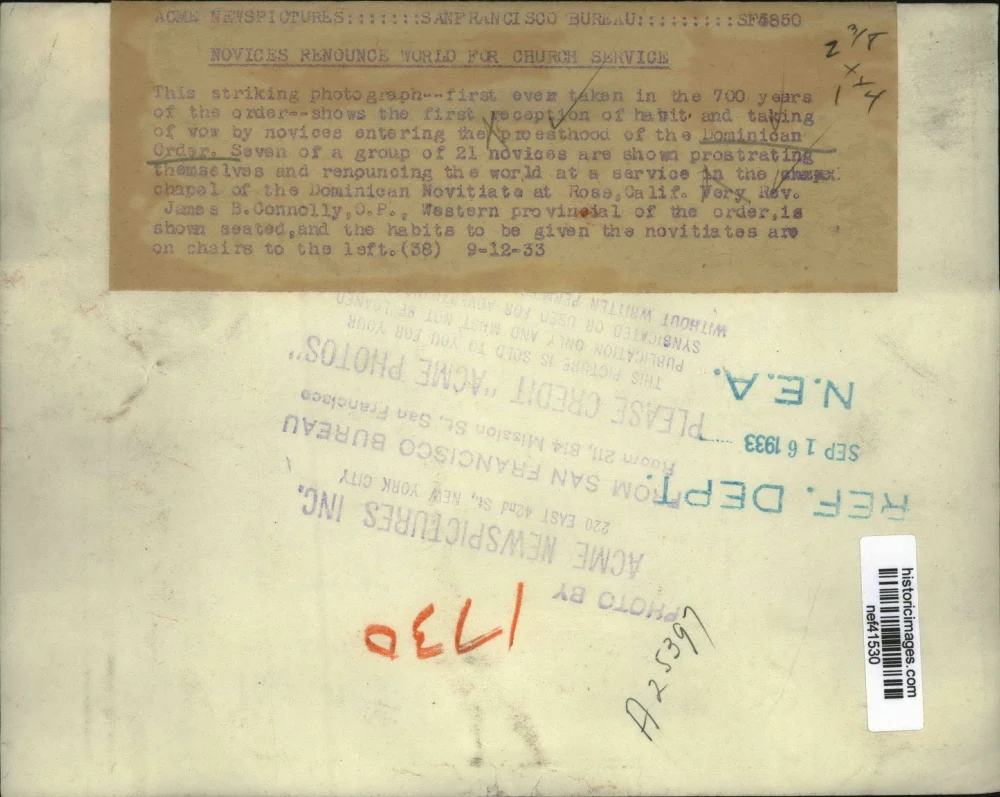 ACME NEWSPICTURES:::::::SANFRANCISCO BUREAU:::::::::SF
NOVICES RENOUNCE WORLD FOR CHURCH SERVICE
This striking photograph--first ever taken in the 700 years
of the order--shows the first reception of habit and taking
of vow by novices entering the preesthood of the Dominican
Order. Seven of a group of 21 novices are shown prostrating
themselves and renouncing the world at a service in the
chapel of the Dominican Novitiate at Ross,Calif. Very Rev.
James B.Connolly,O.P., Western provincial of the order,is
shown seated,and the habits to be given the novitiates are
on chairs to the left.(38) 9-12-33
2 3/8
x
1 1/4
PHOTO BY
ACME NEWSPICTURES INC.
220 EAST 42nd St., NEW YORK CITY
FROM SAN FRANCISCO BUREAU
Room 211, 814 Mission St., San Francisco
PLEASE CREDIT "ACME PHOTOS"
THIS PICTURE IS SOLD TO YOU FOR YOUR
PUBLICATION ONLY AND MUST NOT BE LOANED
SYNDICATED OR USED FOR
WITHOUT WRITTEN
REF. DEPT.
SEP 16 1933
N.E.A.
1730
A25397
historicimages.com
nef41530